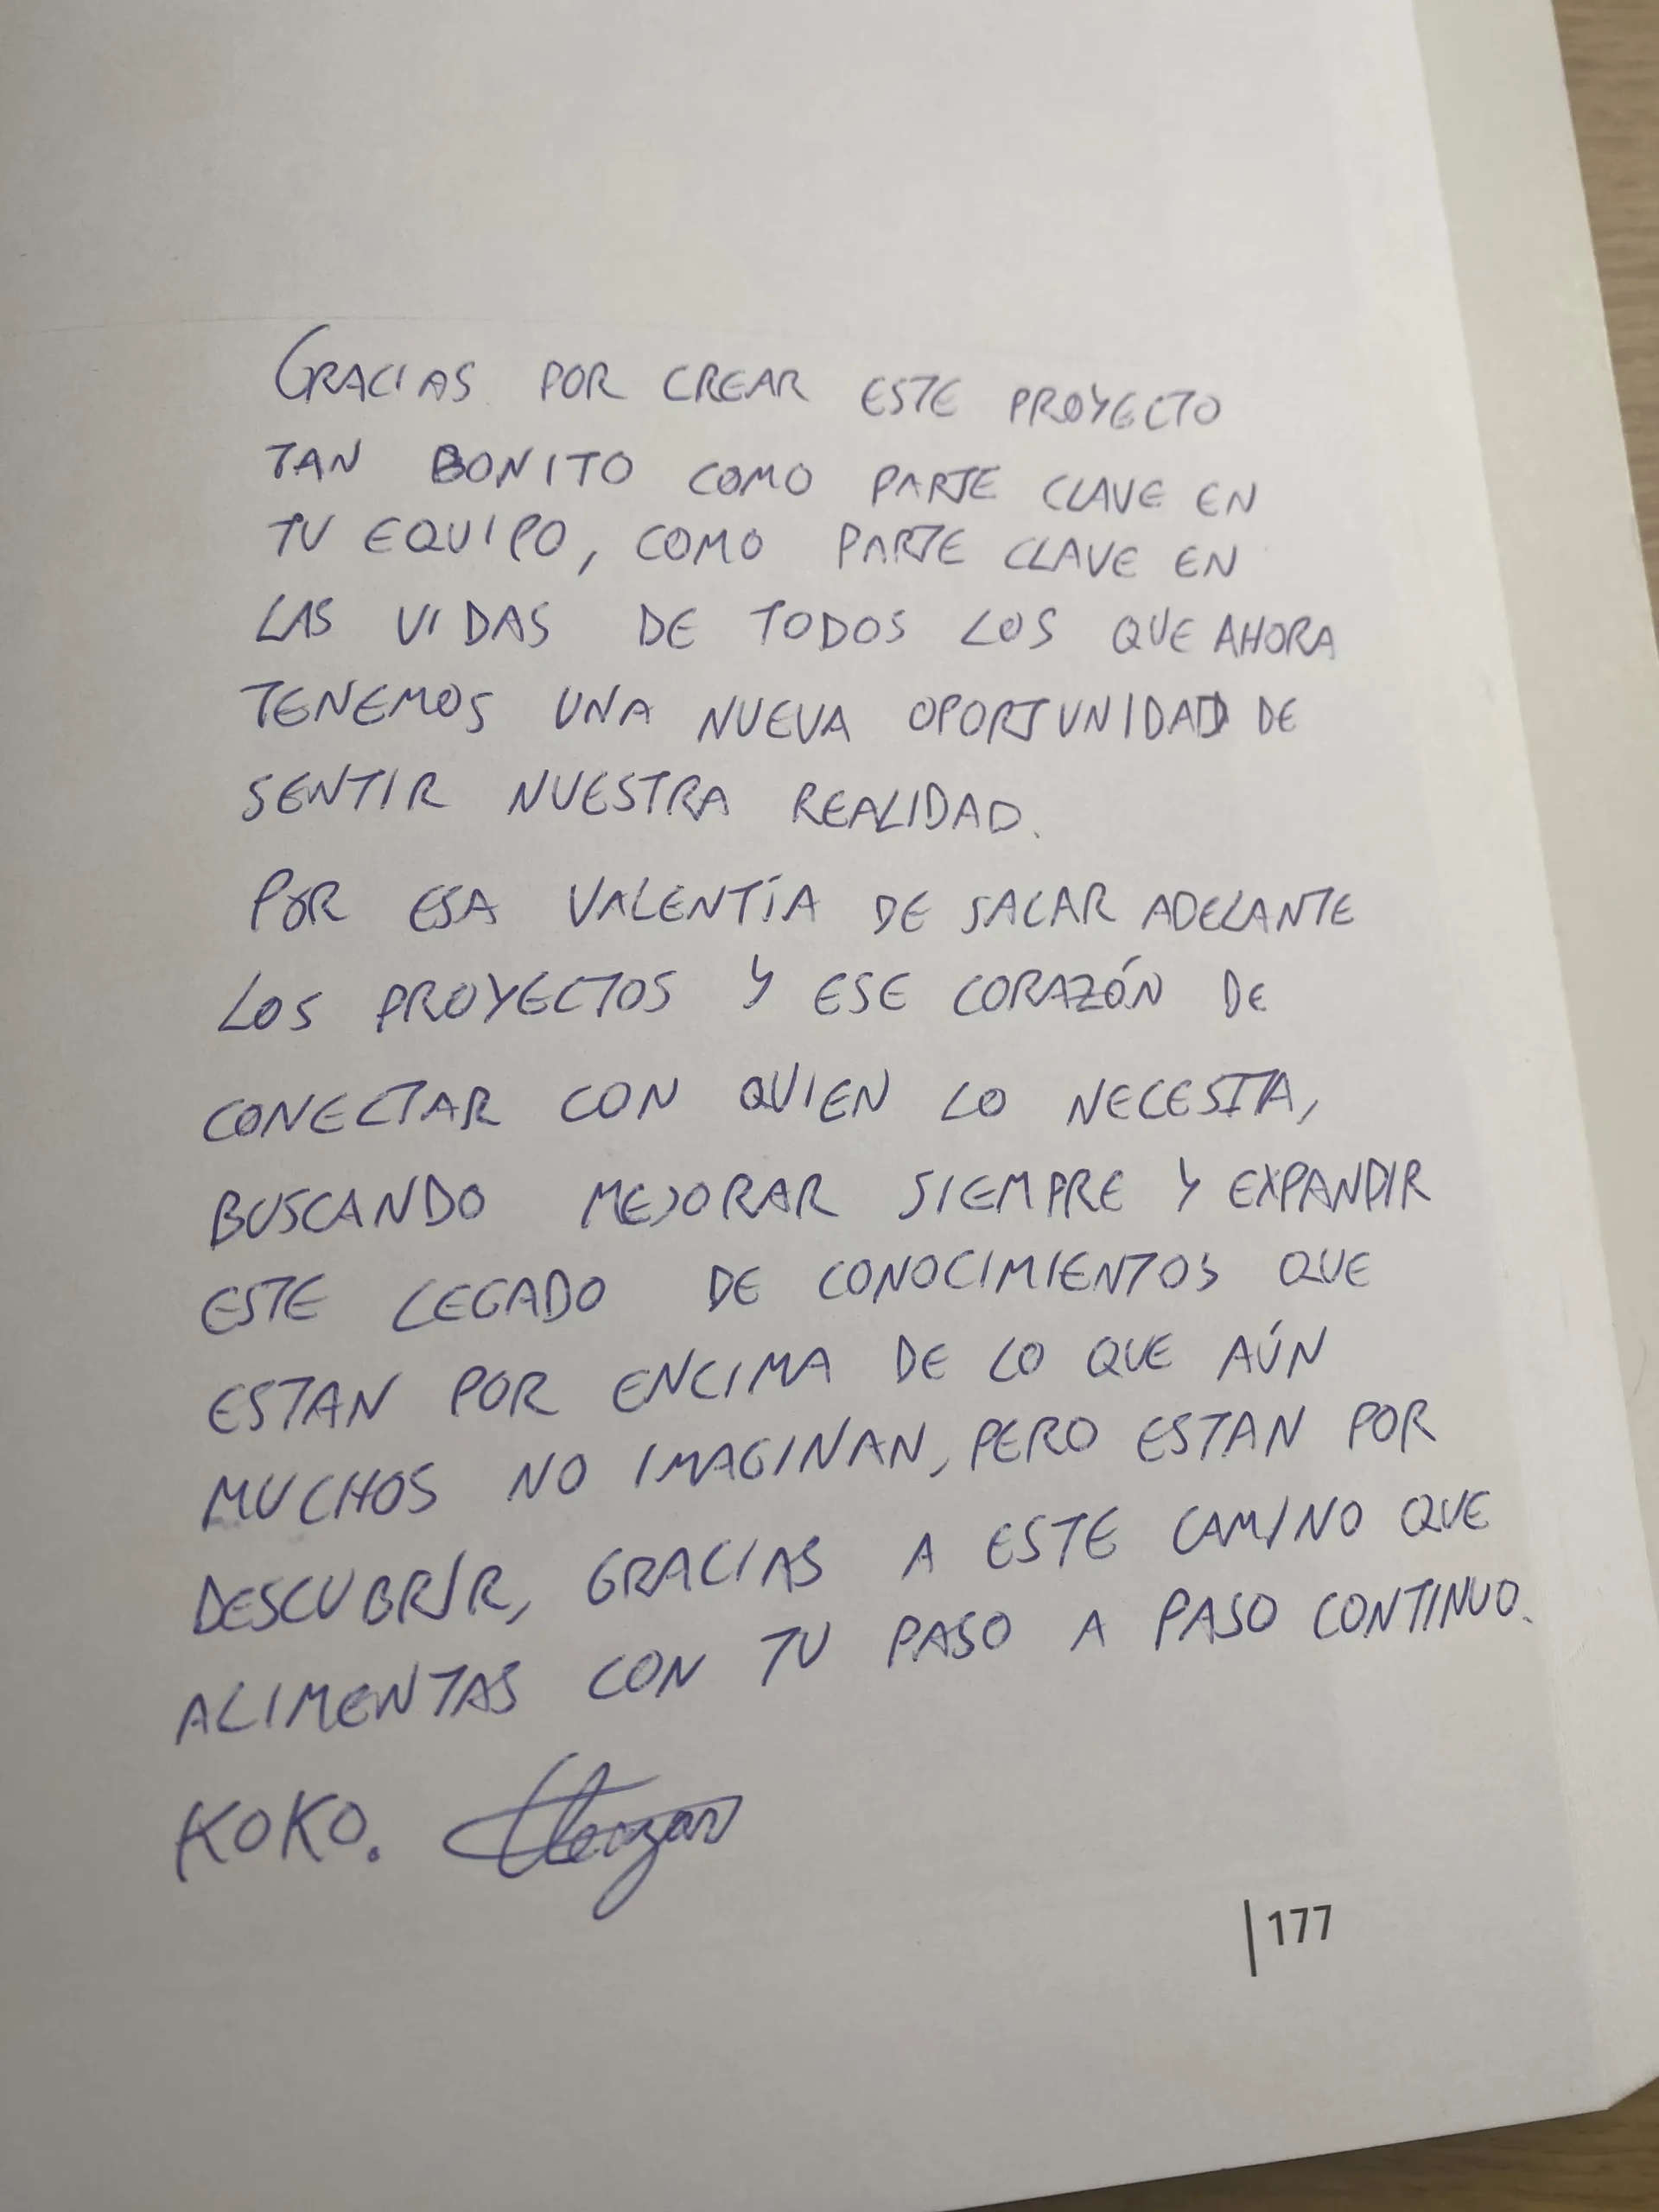 GRACIAS POR CREAR ESTE PROYECTO
TAN BONITO COMO PARTE CLAVE EN
TU EQUIPO, COMO PARTE CLAVE EN
LAS VIDAS DE TODOS LOS QUE AHORA
TENEMOS UNA NUEVA OPORTUNIDAD DE
SENTIR NUESTRA REALIDAD.
POR ESA VALENTÍA DE SACAR ADELANTE
LOS PROYECTOS Y ESE CORAZÓN DE
CONECTAR CON QUIEN LO NECESITA,
BUSCANDO MEJORAR SIEMPRE Y EXPANDIR
ESTE LEGADO DE CONOCIMIENTOS QUE
ESTAN POR ENCIMA DE LO QUE AÚN
MUCHOS NO IMAGINAN, PERO ESTAN POR
DESCUBRIR, GRACIAS A ESTE CAMINO QUE
ALIMENTAS CON TU PASO A PASO CONTINUO.
KOKO.
177